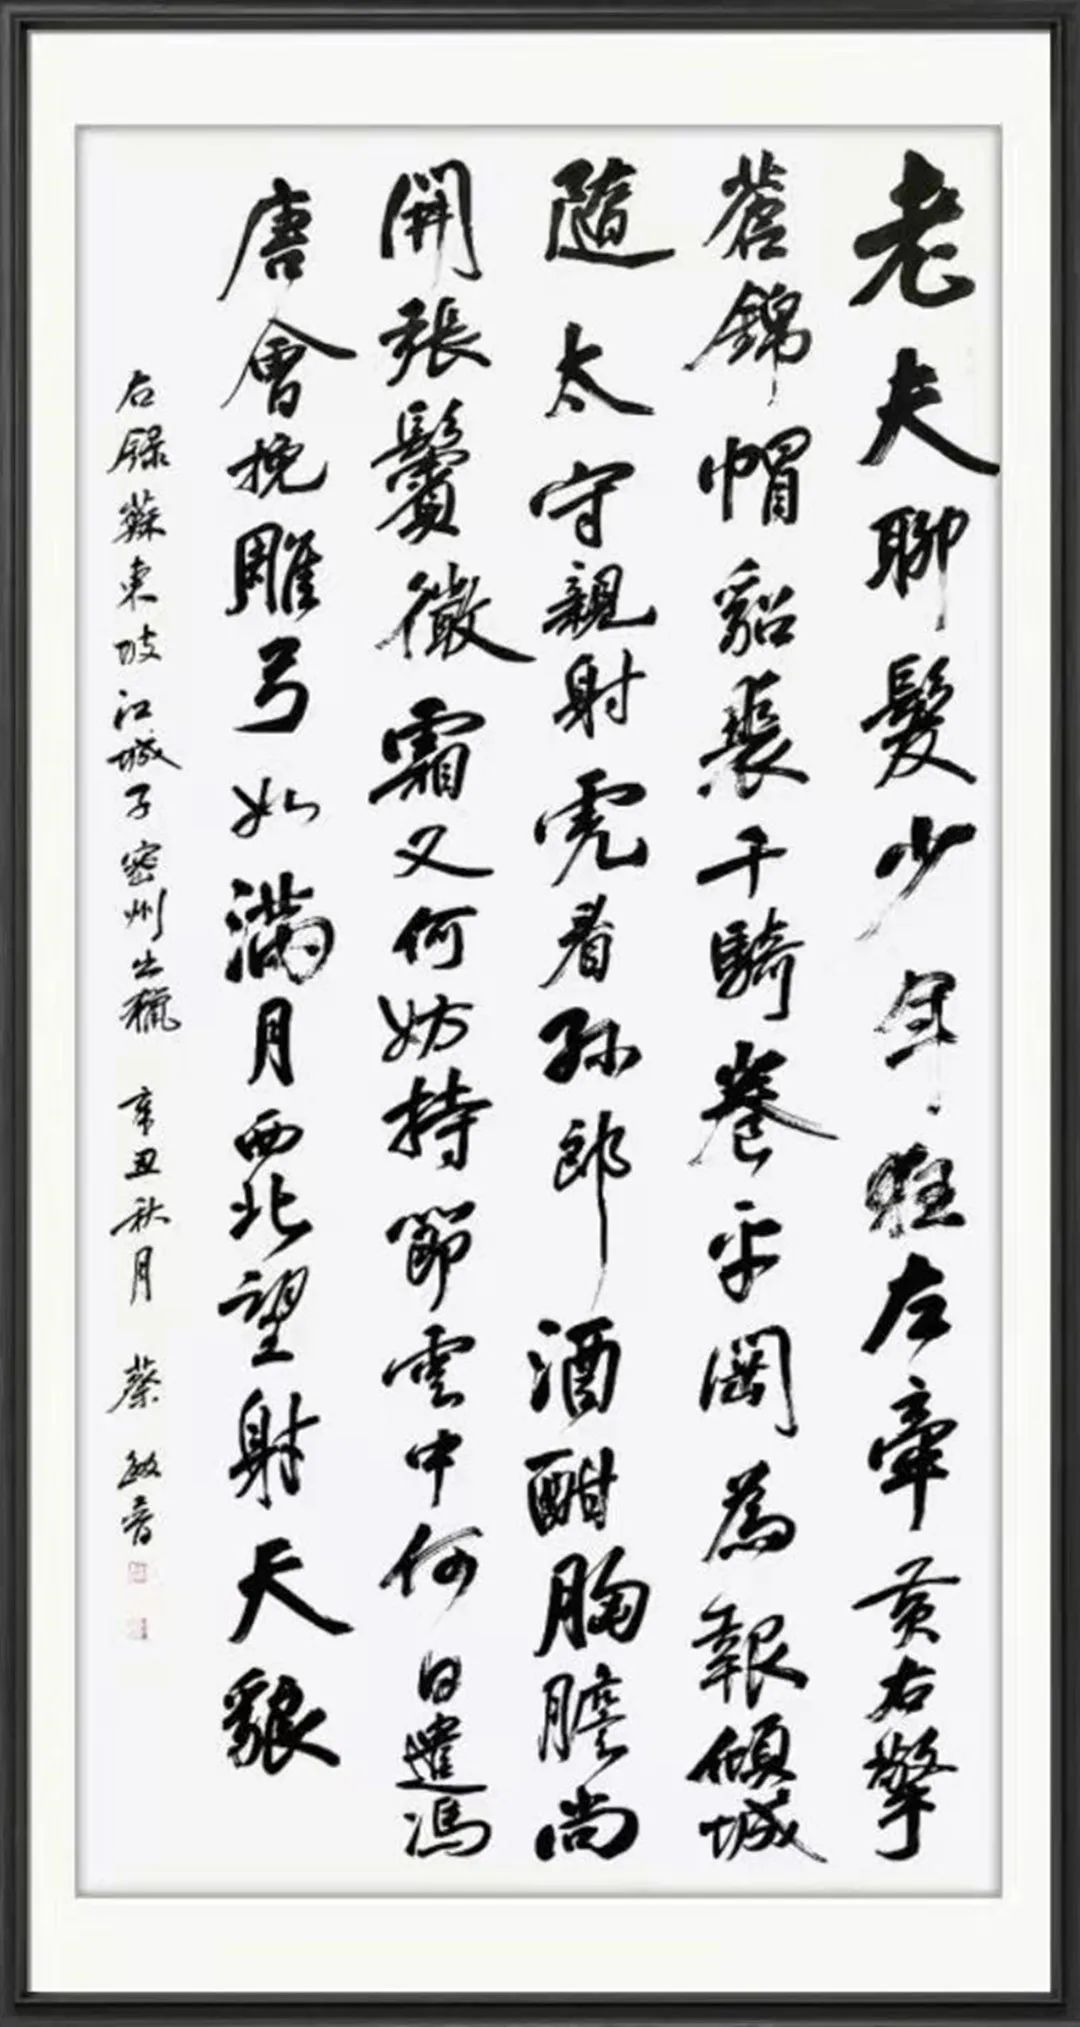 老夫聊髮少年狂左牽黃右擎
蒼錦帽貂裘千騎卷平岡為報傾城
隨太守親射虎看孫郎酒酣胸膽尚
開張鬢微霜又何妨持節雲中何日遣馮
唐會挽雕弓如滿月西北望射天狼
右錄蘇東坡江城子密州出獵 辛丑秋月 蔡敏